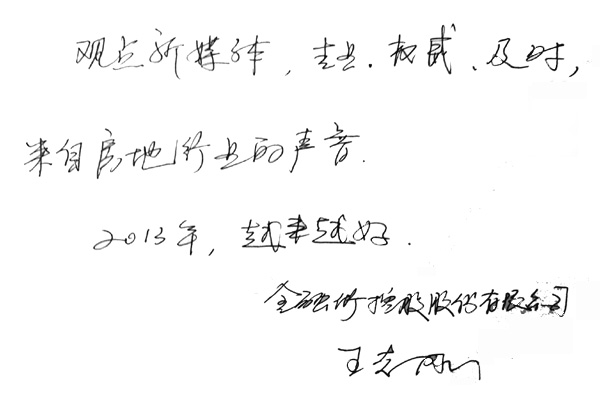 观点新媒体，专业、权威、及时，
来自房地行业的声音.
2013年，越来越好.
金融街控股股份有限公司
王志刚